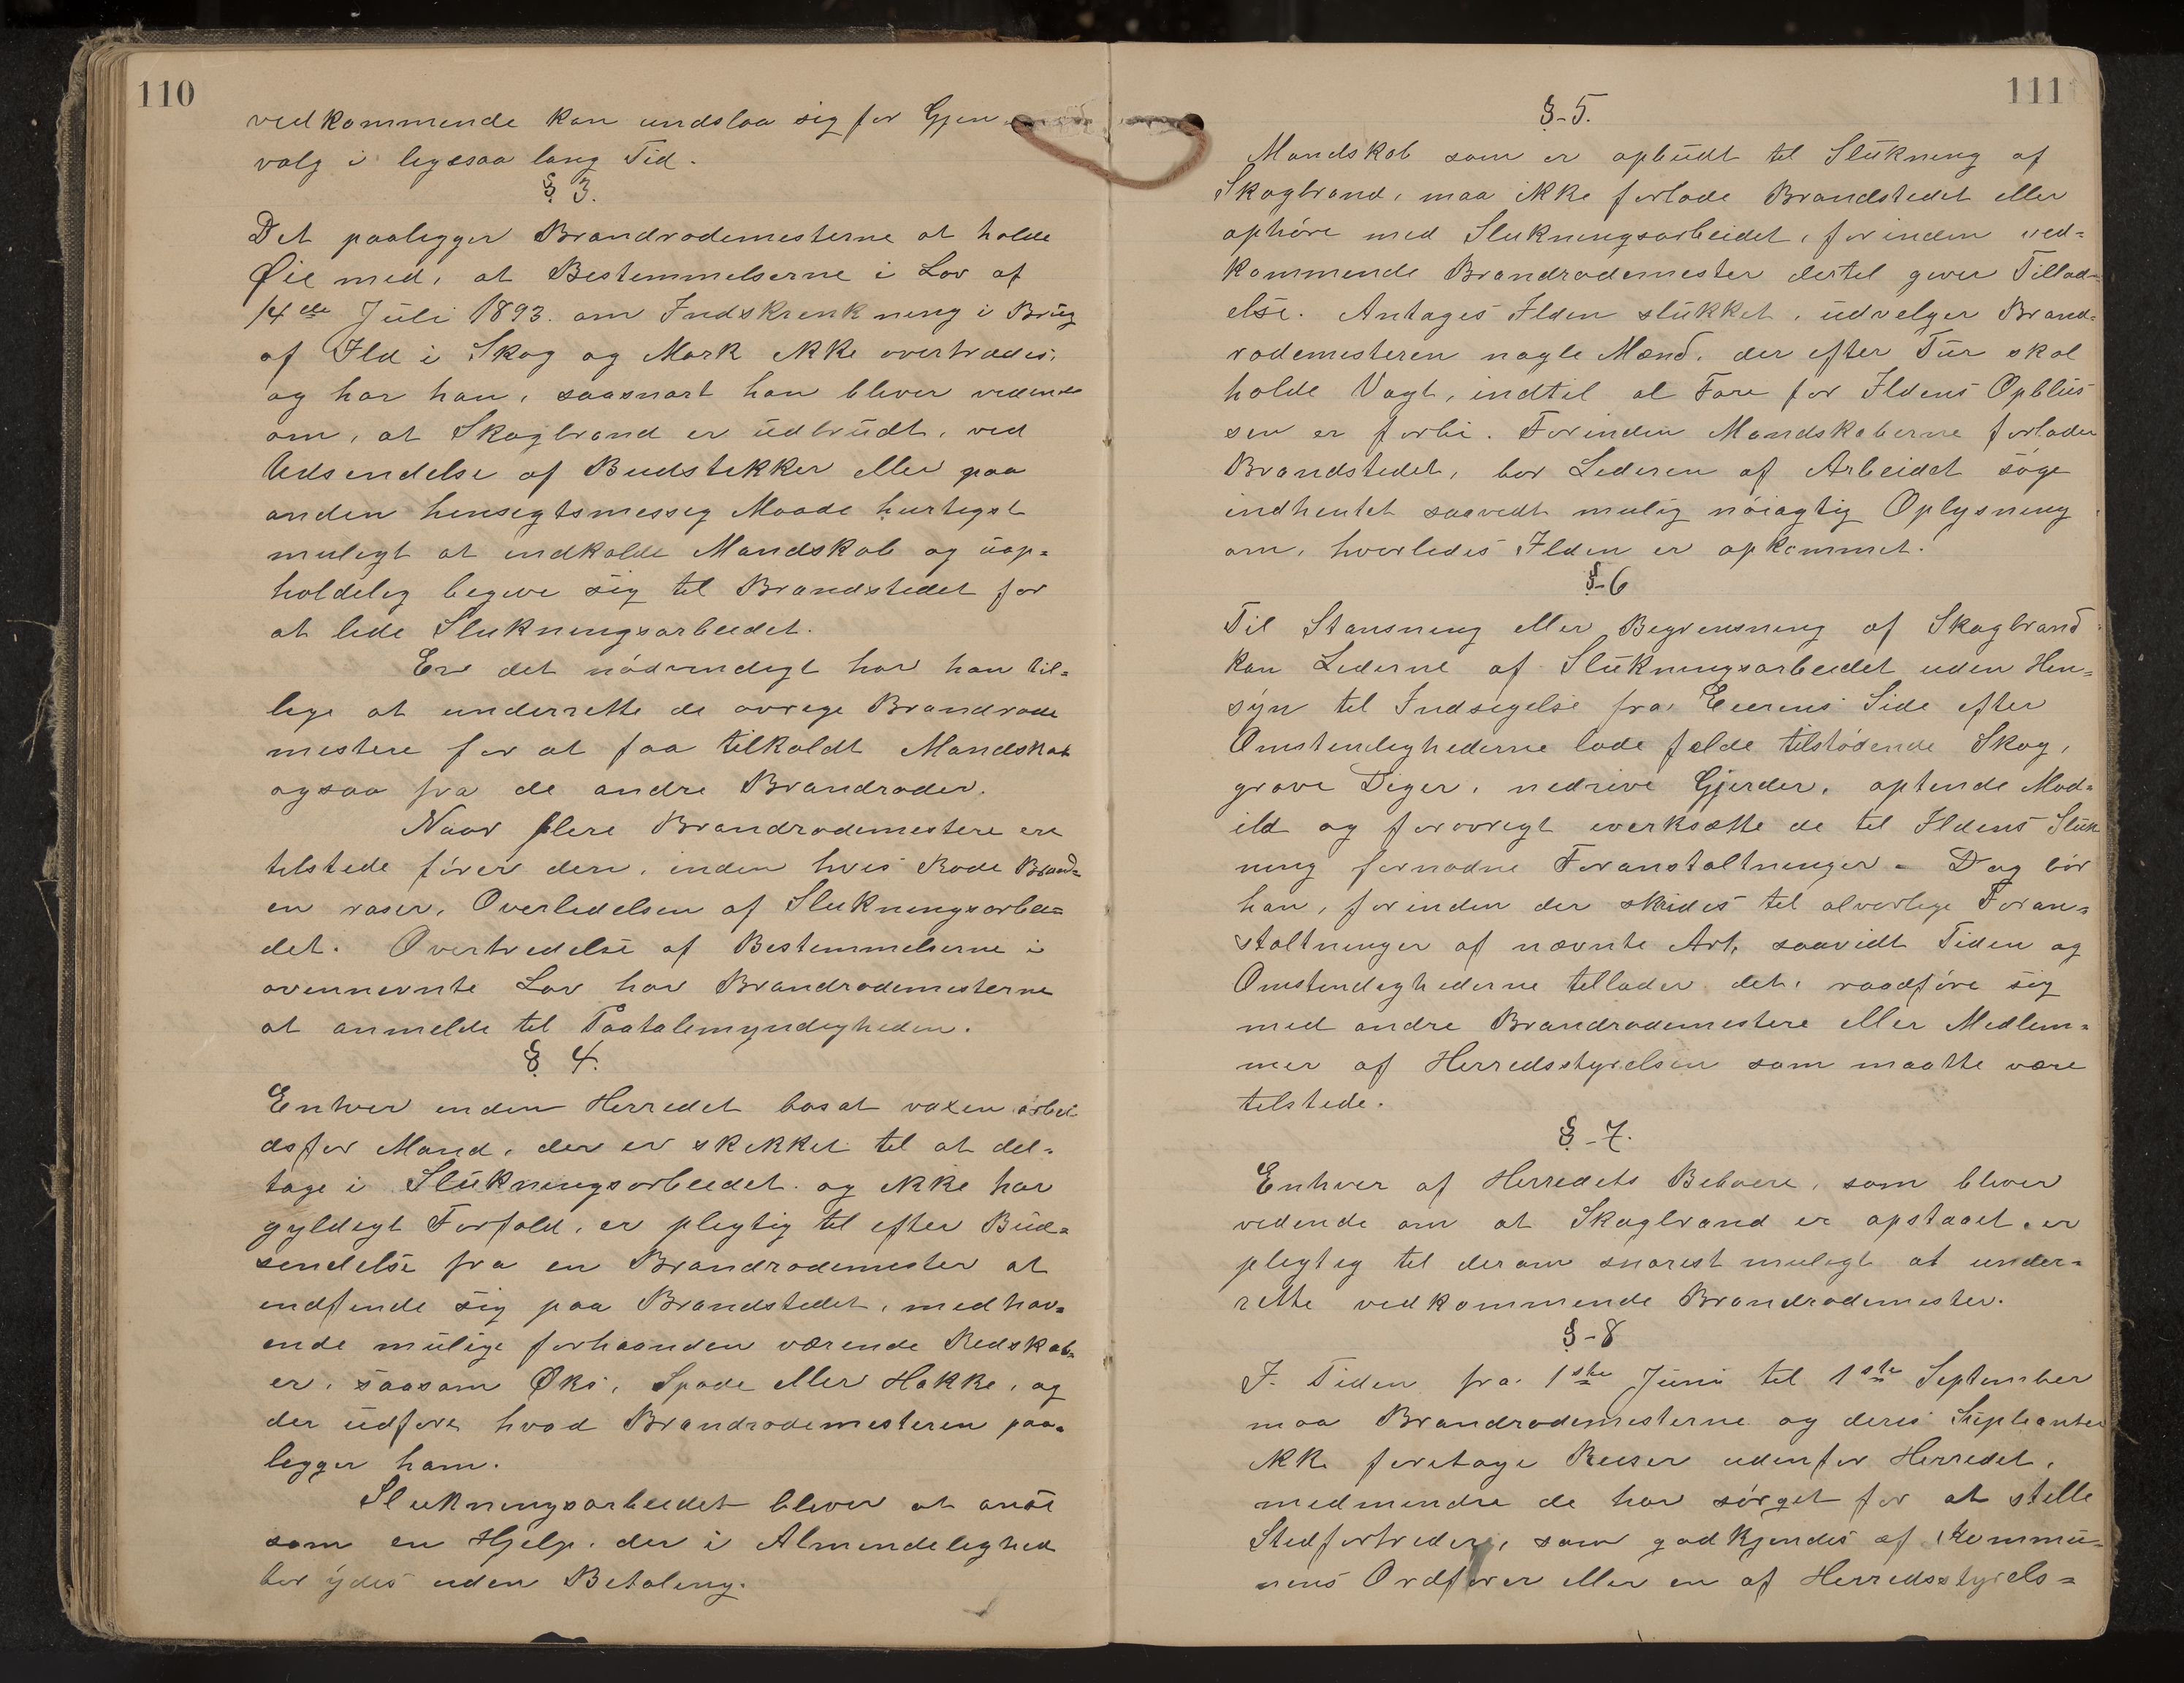 110
vedkommende kan undslaa sig for Gjen
valg i ligesaa lang Tid.
§ 3.
Det paaligger Brandrodemesterne at holde
Øie med, at Bestemmelserne i Lov af
14de Juli 1893 om Indskrenkning i Brug
af Ild i Skog og Mark ikke overtrædes,
og har han, saasnart han bliver vidende
om, at Skogbrand er udbrudt, ved
Udsendelse af Budstikker eller paa
anden hensigtsmessig Maade hurtigst
muligt at indkalde Mandskab og uop=
holdelig begive sig til Brandstedet for
at lede Slukningsarbeidet.
Er det nødvendigt har han til=
lige at underrette de øvrige Brandrode
mestere for at faa tilkaldt Mandskab
ogsaa fra de andre Brandroder.
Naar flere Brandrodemestere ere
tilstede fører den, inden hvis Rode Brand=
en raser, Overledelsen af Slukningsarbei=
det. Overtredelse af Bestemmelserne i
ovennevnte Lov har Brandrodemesterne
at anmelde til Paatalemyndigheden.
§ 4.
Enhver inden Herredet bosat voxen arbei
dsfør Mand, der er skikket til at del=
tage i Slukningsarbeidet og ikke har
gyldigt Forfald, er pligtig til efter Bud=
sendelse fra en Brandrodemester at
indfinde sig paa Brandstedet, medhav=
ende mulige forhaanden værende Redskab=
er, saasom Øks, Spade eller Hakke, og
der udføre hvad Brandrodemesteren paa=
legger ham.
Slukningsarbeidet bliver at anse
som en Hjelp, der i Almindelighed
bør ydes uden Betaling.
111
§-5.
Mandskab som er opbudt til Slukning af
Skogbrand, maa ikke forlade Brandstedet eller
ophøre med Slukningsarbeidet, forinden ved=
kommende Brandrodemester dertil giver Tillad=
else. Antages Ilden slukket, udvelger Brand=
rodemesteren nogle Mænd, der efter Tur skal
holde Vagt, indtil al Fare for Ildens Opblus
sen er forbi. Forinden Mandskaberne forlader
Brandstedet, bør Lederen af Arbeidet søge
indhentet saavidt mulig nøiagtig Oplysning
om, hvorledes Ilden er opkommet.
§-6
Til Stansning eller Begrensning af Skogbrand
kan Lederne af Slukningsarbeidet uden Hen=
syn til Indsigelse fra Eierens Side efter
Omstendighederne lade felde tilstødende Skog,
grave Diger, nedrive Gjerder, optende Mod=
ild og forøvrigt iverksætte de til Ildens Sluk
ning fornødne Foranstaltninger - Dog bør
han, forinden der skrides til alvorlige Foran=
staltninger af nævnte Art, saavidt Tiden og
Omstendighederne tillader det, raadføre sig
med andre Brandrodemestere eller Medlem=
mer af Herredsstyrelsen som maatte være
tilstede.
§-7.
Enhver af Herredets Beboere, som bliver
vidende om at Skogbrand er opstaaet, er
pligtig til derom snarest muligt at under=
rette vedkommende Brandrodemester.
§-8
I Tiden fra 1ste Juni til 1ste September
maa Brandrodemesterne og deres Supleanter
ikke foretage Reiser udenfor Herredet,
medmindre de har sørget for at stille
Stedfortreder, som godkjendes af Kommu=
nens Ordfører eller en af Herredsstyrels=